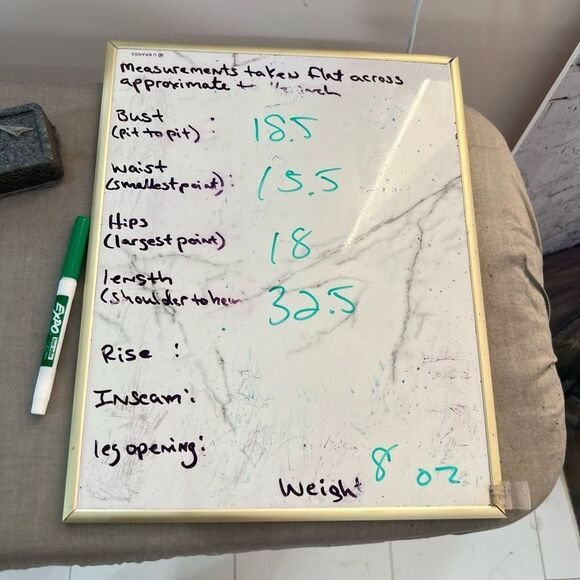 U BRANDS
measurements taken flat across
approximate
Bust : 18.5
(pit to pit)
Waist : 15.5
(smallest point)
Hips 18
(largest point)
length 32.5
(shoulder to hem
Rise :
Inseam:
leg opening:
Weight 8 oz
EXPO